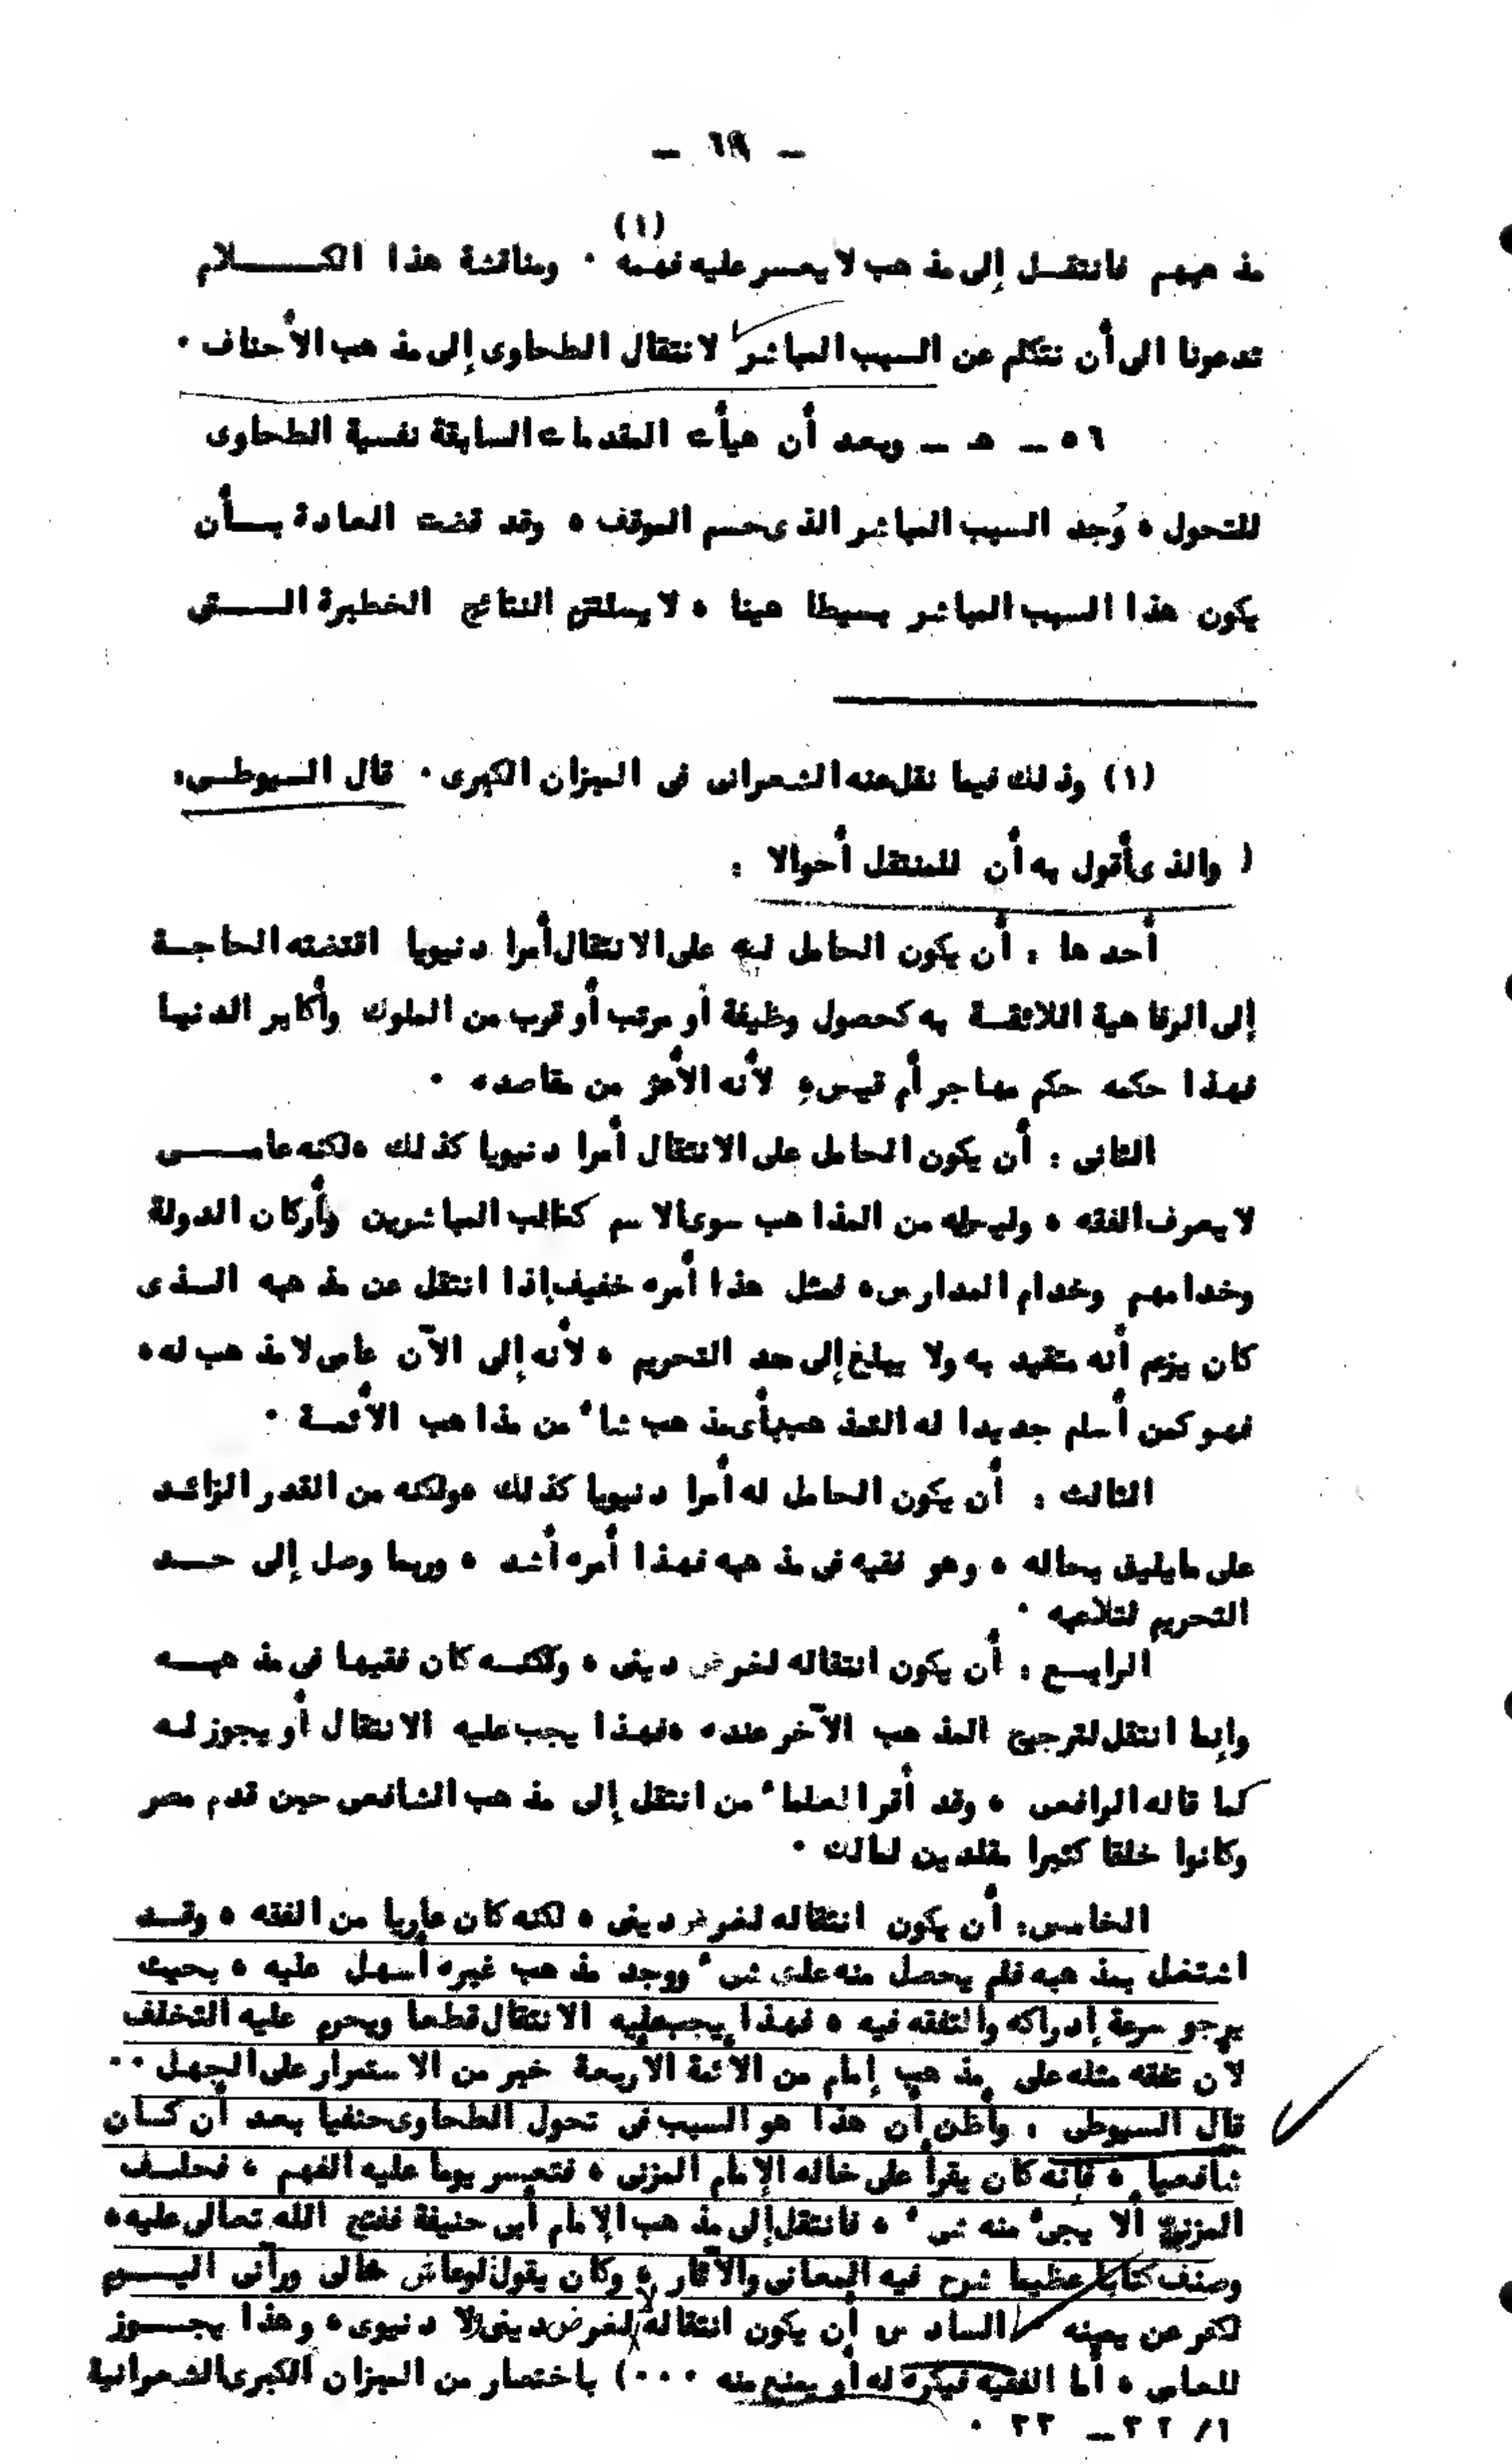 – ٦٩ –
مذهبهم فانتقـل إلى مذهب لا يعسر عليه فهمه (١) ٠ ومناقشة هذا الكـــلام
تدعونا الى أن نتكلم عن السبب المباشر لانتقال الطحاوى إلى مذهب الأحناف ٠
٥٦ – هـ – وبعد أن هيأت المقدمات السابقة نفسية الطحاوى
للتحول ، وُجد السبب المباشر الذى حسم الموقف ، وقد قضت العادة بــأن
يكون هذا السبب المباشر بسيطا هينا ، لا يساوى النتائج الخطيرة الــتى
(١) وذلك فيما نقل عنه الشعرانى فى الميزان الكبرى ٠ قال السيوطـى:
( والذى أقول به أن للمنتقل أحوالا :
أحدها : أن يكون الحامل له على الانتقال أمرا دنيويا اقتضته الحاجـة
إلى الرفاهية اللائقـة به كحصول وظيفة أو مرتب أو قرب من الملوك وأكابر الدنيا
فهذا حكمه حكم مهاجر أم قيس، لأنه الأعز من مقاصده ٠
الثانى : أن يكون الحامل على الانتقال أمرا دنيويا كذلك ،لكنه عامــى
لا يعرف الفقه ، وليس له من المذاهب سوى الاسم كغالب المباشرين وأركان الدولة
وخدامهم وخدام المدارس، فمثل هذا أمره خفيف إذا انتقل عن مذهبه الـذى
كان يزعم أنه متقيد به ولا يبلغ إلى حد التحريم ، لأنه إلى الآن عامى لا مذهب له،
فهو كمن أسلم جديدا له التمذهب بأى مذهب شاء من مذاهب الأئمـة ٠
الثالث : أن يكون الحامل له أمرا دنيويا كذلك ،ولكنه من القدر الزائـد
على ما يليق بحاله ، وهو فقيه فى مذهبه فهذا أمره أشد ، وربما وصل إلى حــد
التحريم لتلاعبه ٠
الرابـع : أن يكون انتقاله لغرض دينى ، ولكنـه كان فقيها فى مذهبــه
وإنما انتقل لترجيح المذهب الآخر عنده ،فهذا يجب عليه الانتقال أو يجوز لـه
كما قاله الرافعى ، وقد أقر العلماء من انتقل إلى مذهب الشافعى حين قدم مصر
وكانوا خلقا كثيرا مقلدين لمالك ٠
الخامس: أن يكون انتقاله لغرض دينى ، لكنه كان عاريا من الفقه ، وقـد
اشتغل بمذهبه فلم يحصل منه على شىء ووجد مذهب غيره أسهل عليه ، بحيث
يرجو سرعة إدراكه والتفقه فيه ، فهذا يجب عليه الانتقال قطعا ويحرم عليه التخلف
لان تفقه مثله على مذهب إمام من الائمة الاربعة خير من الاستمرار على الجهل ٠٠
قال السيوطى : وأظن أن هذا هو السبب فى تحول الطحاوى حنفيا بعد أن كـان
شافعيا ، فإنه كان يقرأ على خاله الإمام المزنى ، فتعسر يوما عليه الفهم ، فحلـف
المزنى ألا يجىء منه شىء ، فانتقل إلى مذهب الإمام أبى حنيفة ففتح الله تعالى عليه،
وصنف كتابا عظيما شرح فيه المعانى والآثار ، وكان يقول:لو عاش خالى ورآنى اليــوم
لكفر عن يمينه السادس أن يكون انتقاله لغرض دينى لا دنيوى ، وهذا يجــوز
للعامى ، أما الفقيه فيكره له أو يمنع منه ٠٠٠) باختصار من الميزان الكبرى الشعرانية
١/ ٣٢ – ٣٣ ٠